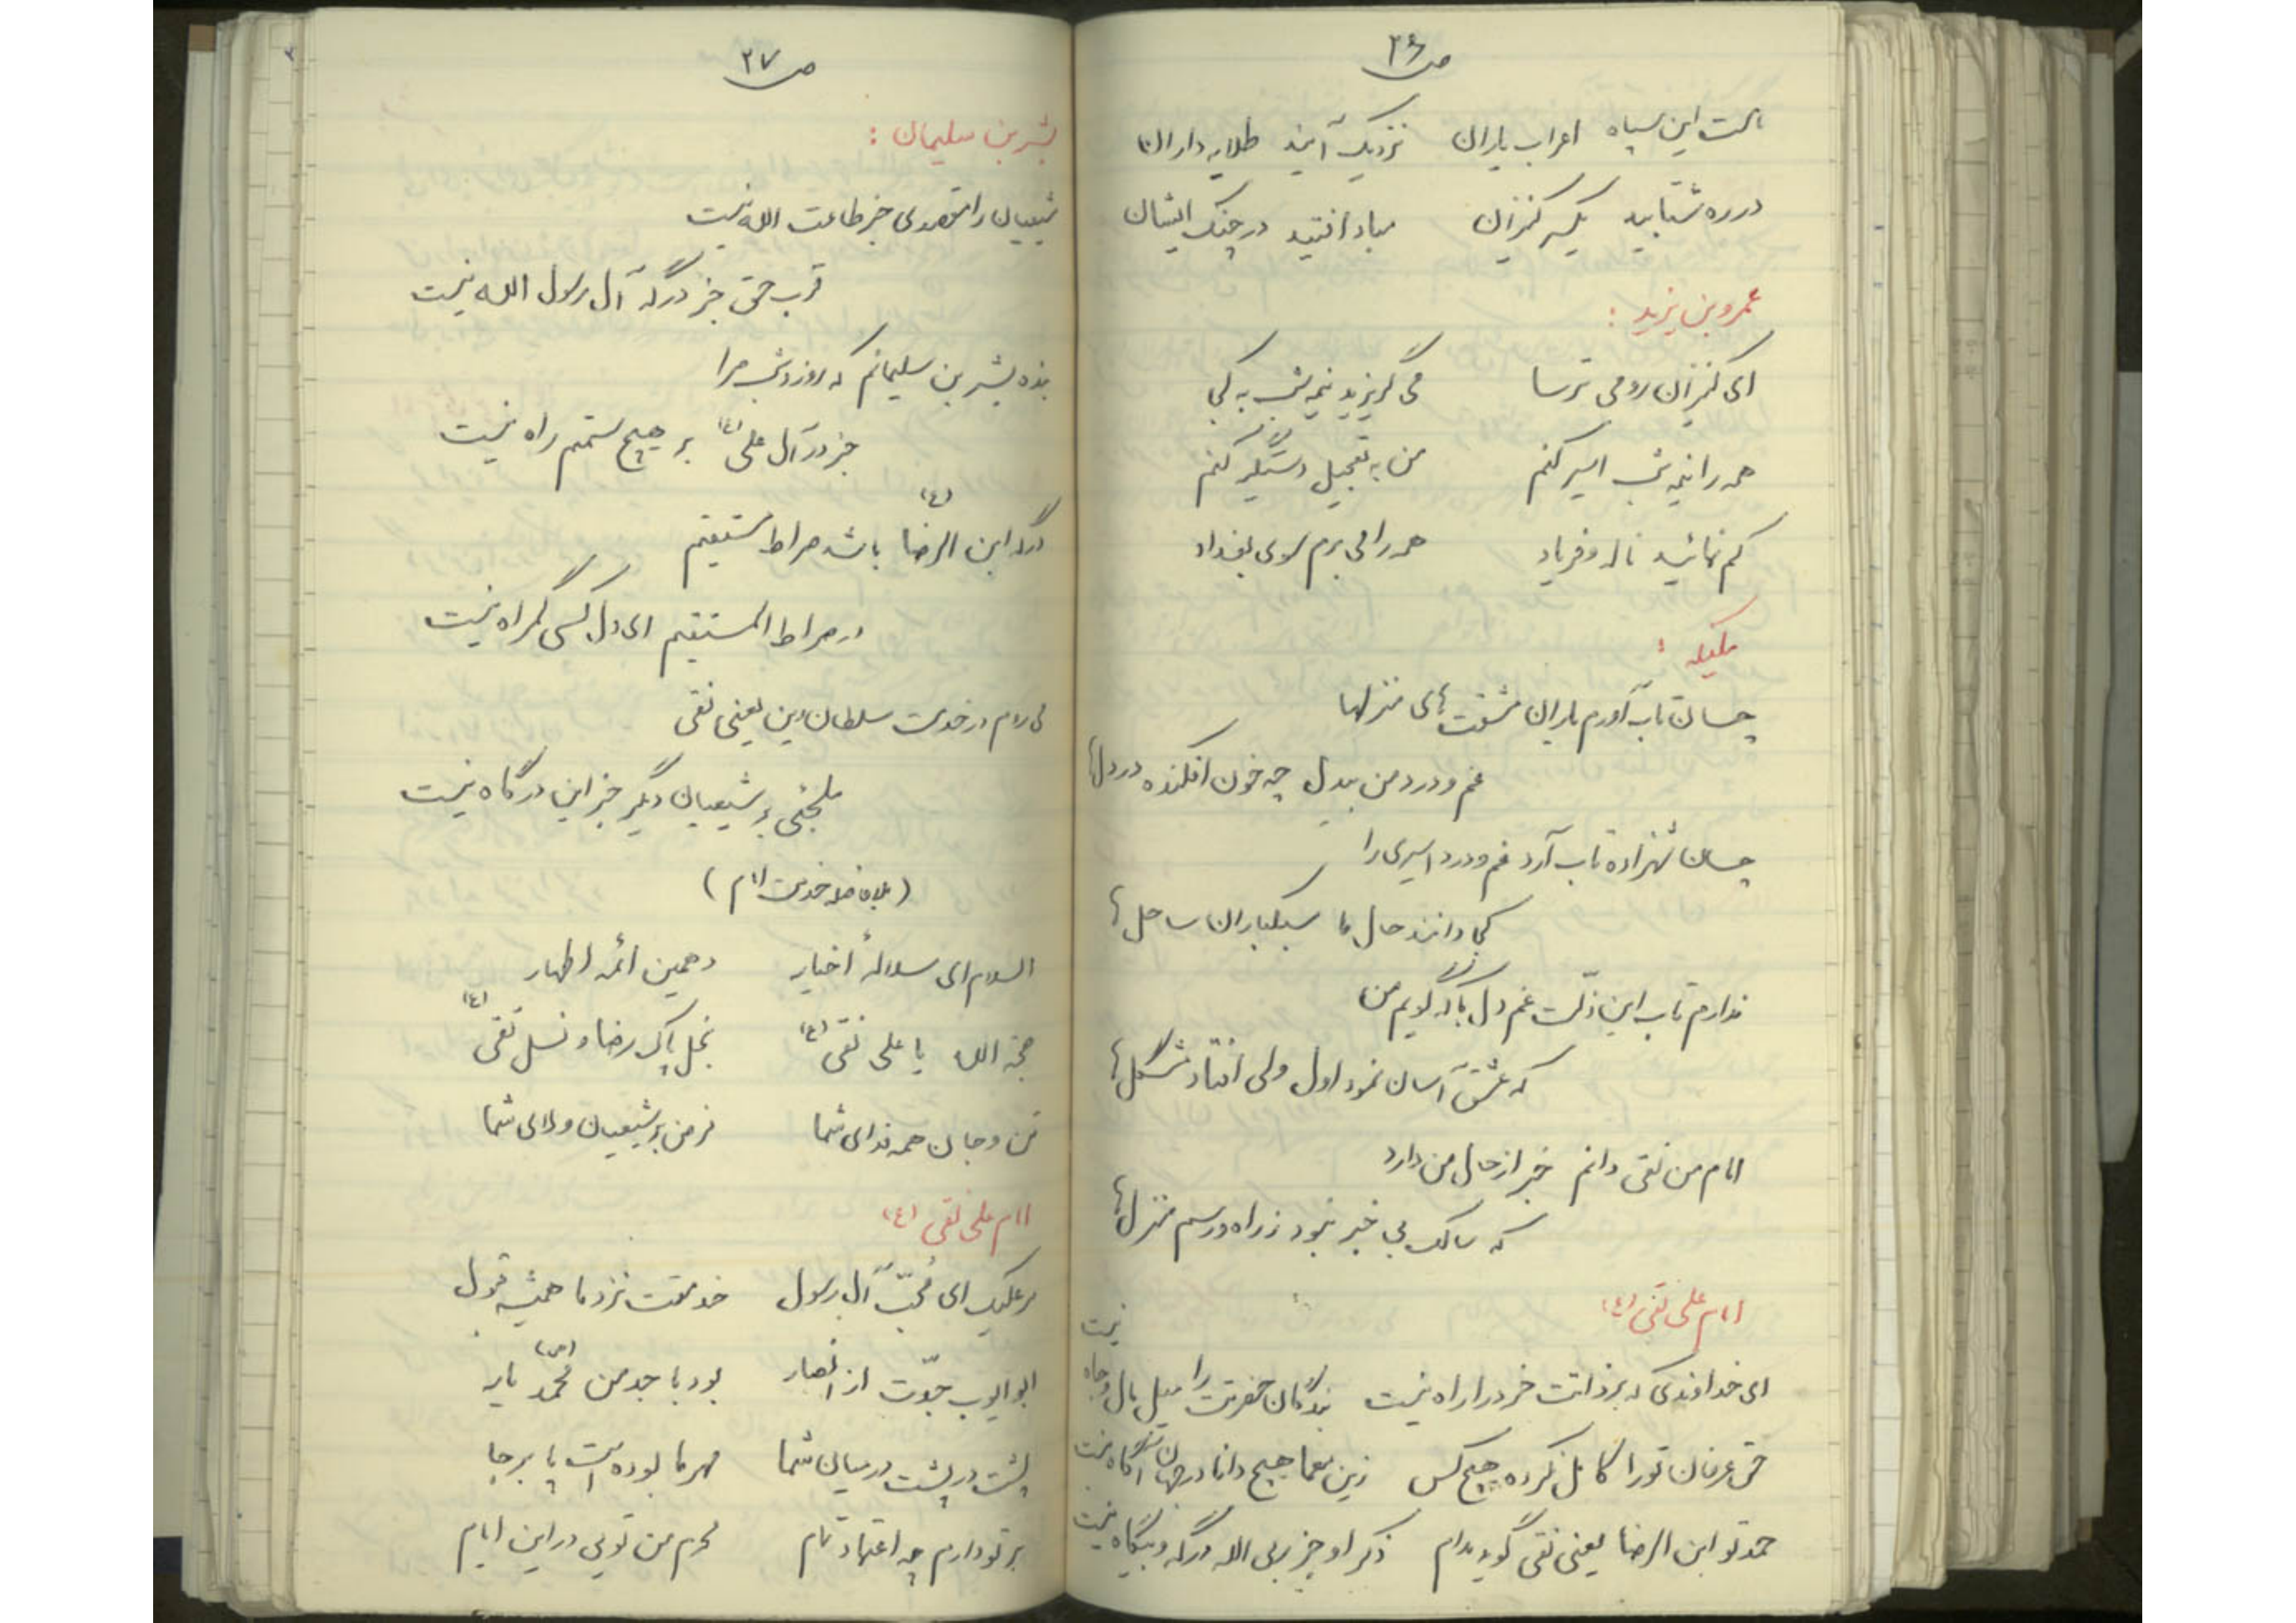 ص ۲۶
است این سپاه اعراب یاران نزدیک آیند طلایه داران
در ره شتابید یکسر کنیزان مباد افتید در چنگ ایشان
عمرو بن یزید :
ای کنیزان رومی ترسا می گریزید نیمه شب به کجا
همه را نیمه شب اسیر کنم من به تعجیل دستگیر کنم
کم نمائید ناله و فریاد همه را می برم سوی بغداد
ملیکه :
چسان تاب آورم یاران مشقت های منزلها
غم و درد من بیدل چه خون افکنده در دلها
چسان شهزاده تاب آرد غم و درد اسیری را
کجا دانند حال ما سبکباران ساحل ها
ندارم تاب این ذلّت غم دل با که گویم من
که عشق آسان نمود اول ولی افتاد مشگل ها
امام من نقی دانم خبر از حال من دارد
که سالک بی خبر نبود ز راه و رسم منزل ها
امام علی نقی (ع)
ای خداوندی که بر ذاتت خرد را راه نیست بندگان حضرتت را میل مال و جاه نیست
حق عرفان تو را کامل نکرده هیچ کس زین معما هیچ دانا در جهان آگاه نیست
حمد تو ابن الرضا یعنی نقی گوید مدام ذکر او جز بی الله درگه و بیگاه نیست
ص ۲۷
بشر بن سلیمان :
شیعیان را مقصدی جز طاعت الله نیست
قرب حق جز درگه آل رسول الله نیست
بنده بشر بن سلیمانم که روز و شب مرا
جز در آل علی (ع) بر هیچ سمتم راه نیست
درگه ابن الرضا (ع) باشد صراط مستقیم
در صراط المستقیم ای دل کسی گمراه نیست
می روم در خدمت سلطان دین یعنی نقی
ملجئی بر شیعیان دیگر جز این درگاه نیست
( بلافاصله خدمت امام )
السلام ای سلالهٔ اخیار دهمین ائمه اطهار
حجة الله یا علی نقی (ع) نجل پاک رضا و نسل تقی (ع)
تن و جان همه فدای شما فرض بر شیعیان ولای شما
امام علی نقی (ع)
بر علیک ای مُحبّ آل رسول خدمتت نزد ما همیشه قبول
ابو ایوب جدّت از انصار بود با جد من محمّد (ص) یار
پشت در پشت در میان شما مهر ما بوده است پا برجا
بر تو دارم چه اعتماد تمام محرم من تویی در این ایام